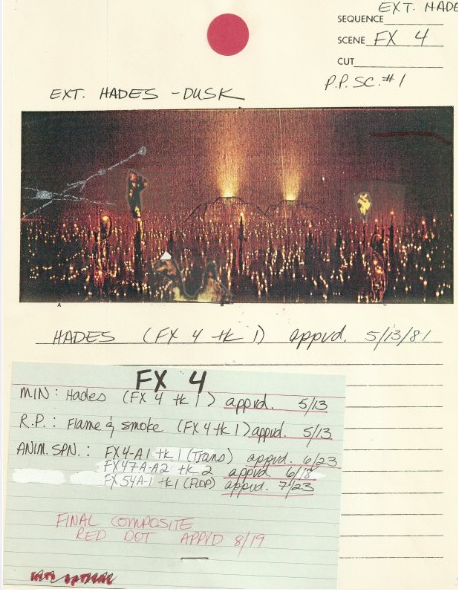 EXT. HADE
SEQUENCE
SCENE FX 4
CUT
P.P. SC. #1
EXT. HADES - DUSK
HADES (FX 4 tk 1) appvd. 5/13/81
FX 4
MIN: Hades (FX 4 tk 1) appvd. 5/13
R.P.: Flame & smoke (FX 4 tk 1) appvd. 5/13
ANIM. SPN.: FX4-A1 tk 1 (Trans) appvd. 6/23
FX47A-A2 tk 2 appvd 6/18
FX54A-1 tk 1 (FLOP) appvd. 7/23
FINAL COMPOSITE
RED DOT APP'D 8/19